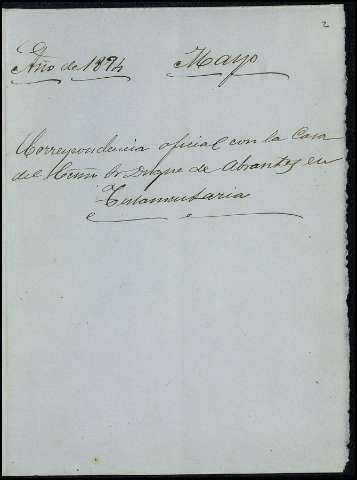 2
Año de 1894 Mayo
Correspondencia oficial con la Casa
del Excmo Sr Duque de Abrantes en
Testamentaria